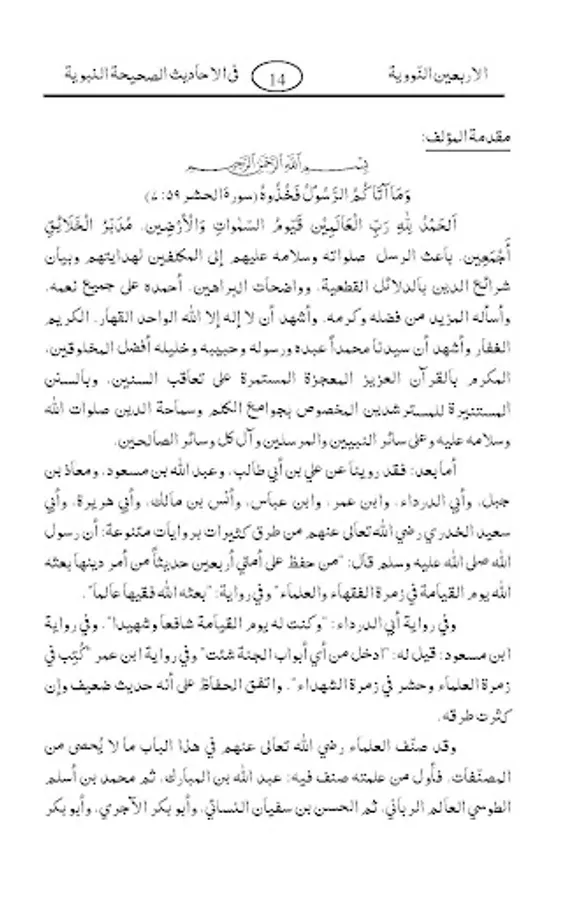 الاربعين النّووية 14 فى الاحاديث الصحيحة النبوية
مقدمة المؤلف:
بِسْمِ اللهِ الرَّحْمٰنِ الرَّحِيْمِ
وَمَا آتَاكُمُ الرَّسُوْلُ فَخُذُوْهُ (سورة الحشر ٥٩: ٧)
اَلحَمْدُ لِلّٰهِ رَبِّ الْعَالَمِيْنَ قَيُوْمُ السَّمٰواتِ وَالْأَرْضِينَ، مُدَبّرُ الْخَلَائِقِ
أَجْمَعِين، باعث الرسل صلواته وسلامه عليهم إلى المكلفين لهدايتهم وبيان
شرائع الدين بالدلائل القطعية، وواضحات البراهين، أحمده على جميع نعمه،
وأسأله المزيد من فضله وكرمه، وأشهد أن لا إله إلا الله الواحد القهار، الكريم
الغفار وأشهد أن سيدنا محمداً عبده ورسوله وحبيبه وخليله أفضل المخلوقين،
المكرم بالقرآن العزيز المعجزة المستمرة على تعاقب السنين، وبالسنن
المستنيرة للمسترشدين المخصوص بجوامع الكلم وسماحة الدين صلوات الله
وسلامه عليه وعلى سائر النبيين والمرسلين وآل كل وسائر الصالحين.
أما بعد: فقد روينا عن علي بن أبي طالب، وعبد الله بن مسعود، ومعاذ بن
جبل، وأبي الدرداء، وابن عمر، وابن عباس، وأنس بن مالك، وأبي هريرة، وأبي
سعيد الخدري رضي الله تعالى عنهم من طرق كثيرات بروايات متنوعة: أن رسول
الله صلى الله عليه وسلم قال: "من حفظ على أمتي أربعين حديثاً من أمر دينها بعثه
الله يوم القيامة في زمرة الفقهاء والعلماء" وفي رواية: "بعثه الله فقيها عالما".
وفي رواية أبي الدرداء: "وكنت له يوم القيامة شافعا وشهيدا". وفي رواية
ابن مسعود: قيل له: "ادخل من أي أبواب الجنة شئت" وفي رواية ابن عمر "كُتِب في
زمرة العلماء وحشر في زمرة الشهداء". واتفق الحفاظ على أنه حديث ضعيف وإن
كثرت طرقه.
وقد صنّف العلماء رضي الله تعالى عنهم في هذا الباب ما لا يُحصى من
المصنّفات، فأول من علمته صنف فيه: عبد الله بن المبارك، ثم محمد بن أسلم
الطوسي العالم الرباني، ثم الحسن بن سفيان النسائي، وأبو بكر الآجري، وأبو بكر